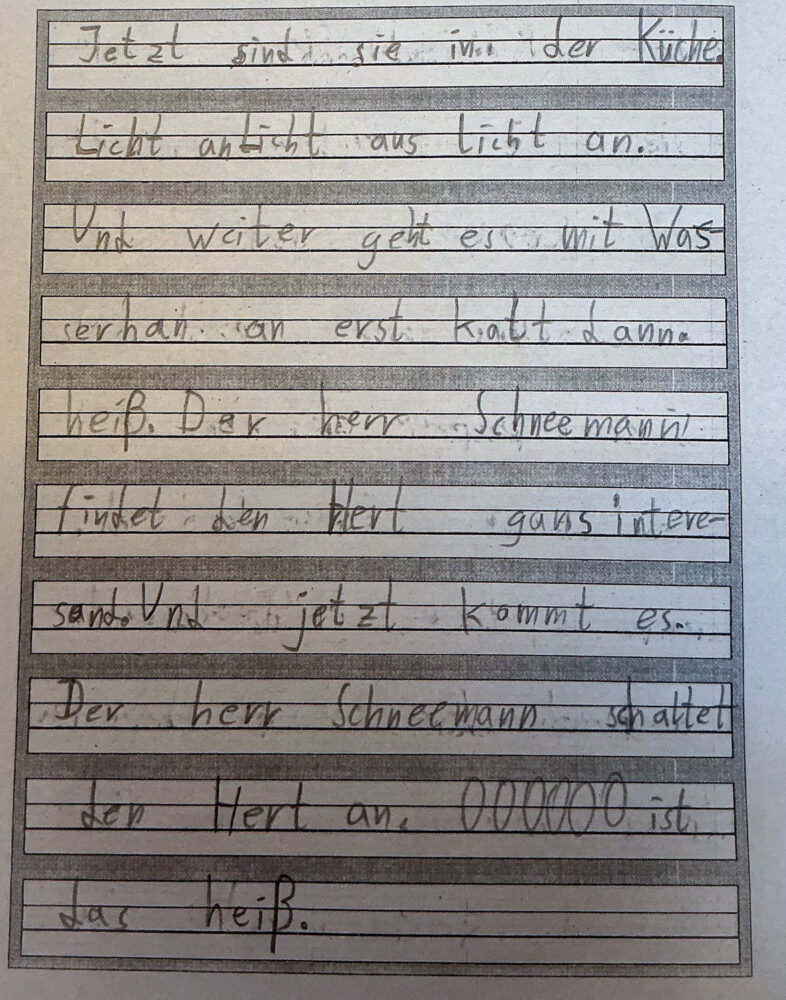 Jetzt sind sie in der Küche.
Licht anlicht aus licht an.
Und weiter geht es mit Was-
serhan an erst kalt dann.
heiß. Der herr Schneemann
findet den Hert gans intere-
sand. Und jetzt kommt es.
Der herr Schneemann schaltet
den Hert an. OOOOOO ist
das heiß.